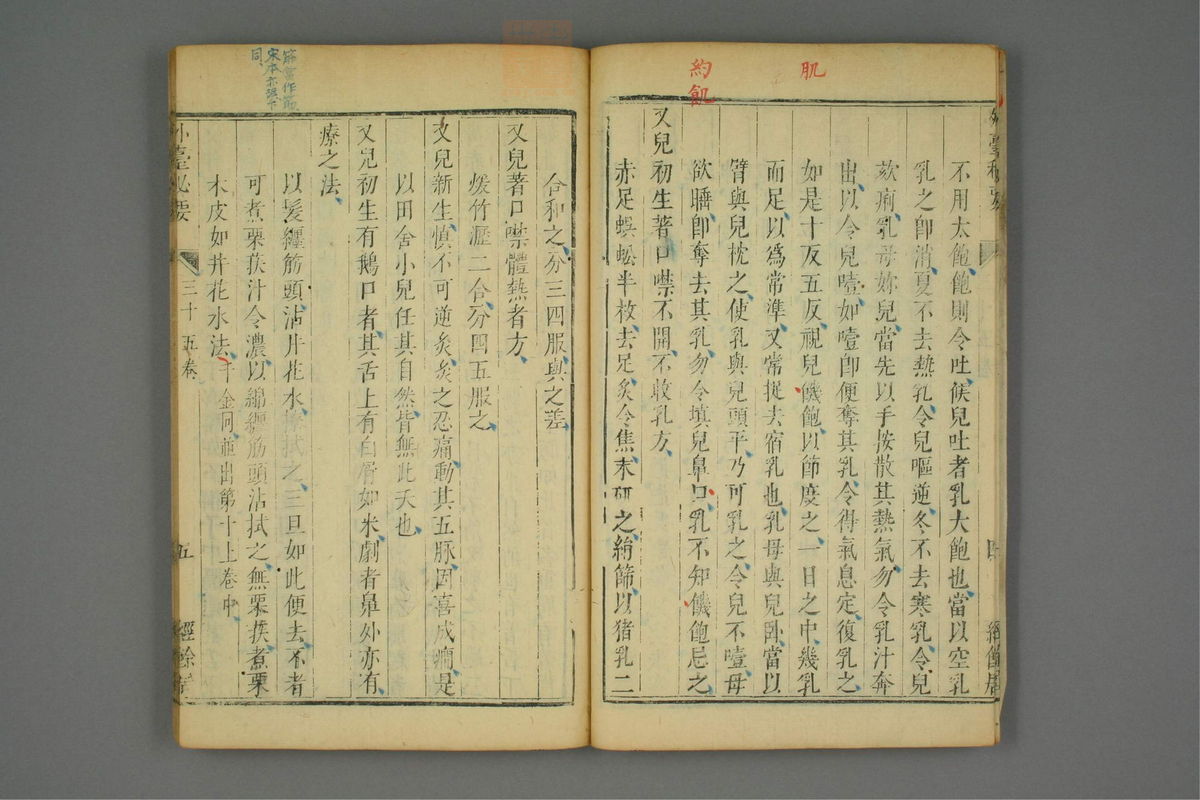 肌
約
飢
不用太飽飽則令吐候兒吐者乳大飽也當以空乳
乳之卽消夏不去熱乳令兒嘔逆冬不去寒乳令兒
欬痢乳母妳兒當先以手按散其熱氣勿令乳汁奔
出以令兒噎如噎卽便奪其乳令得氣息定復乳之
如是十反五反視兒饑飽以節度之一日之中幾乳
而足以爲常準又常捉去宿乳也乳母與兒臥當以
臂與兒枕之使乳與兒頭平乃可乳之令兒不噎母
欲睡卽奪去其乳勿令填兒鼻口乳不知饑飽忌之
又兒初生著口噤不開不收乳方
赤足蜈蚣半枚去足炙令焦末研之綃篩以猪乳二
合和之分三四服與之差
又兒著口噤體熱者方
煖竹瀝二合分四五服之
又兒新生慎不可逆炙炙之忍痛動其五脉因喜成癇是
以田舍小兒任其自然皆無此夭也
又兒初生有鵝口者其舌上有白屑如米劇者鼻外亦有
療之法
以髮纏筋頭沾井花水撩拭之三旦如此便去不者
可煮栗莢汁令濃以綿纏筋頭沾拭之無栗莢煮栗
木皮如井花水法千金同並出第十上卷中
外臺必要
三十五卷
五
經餘居